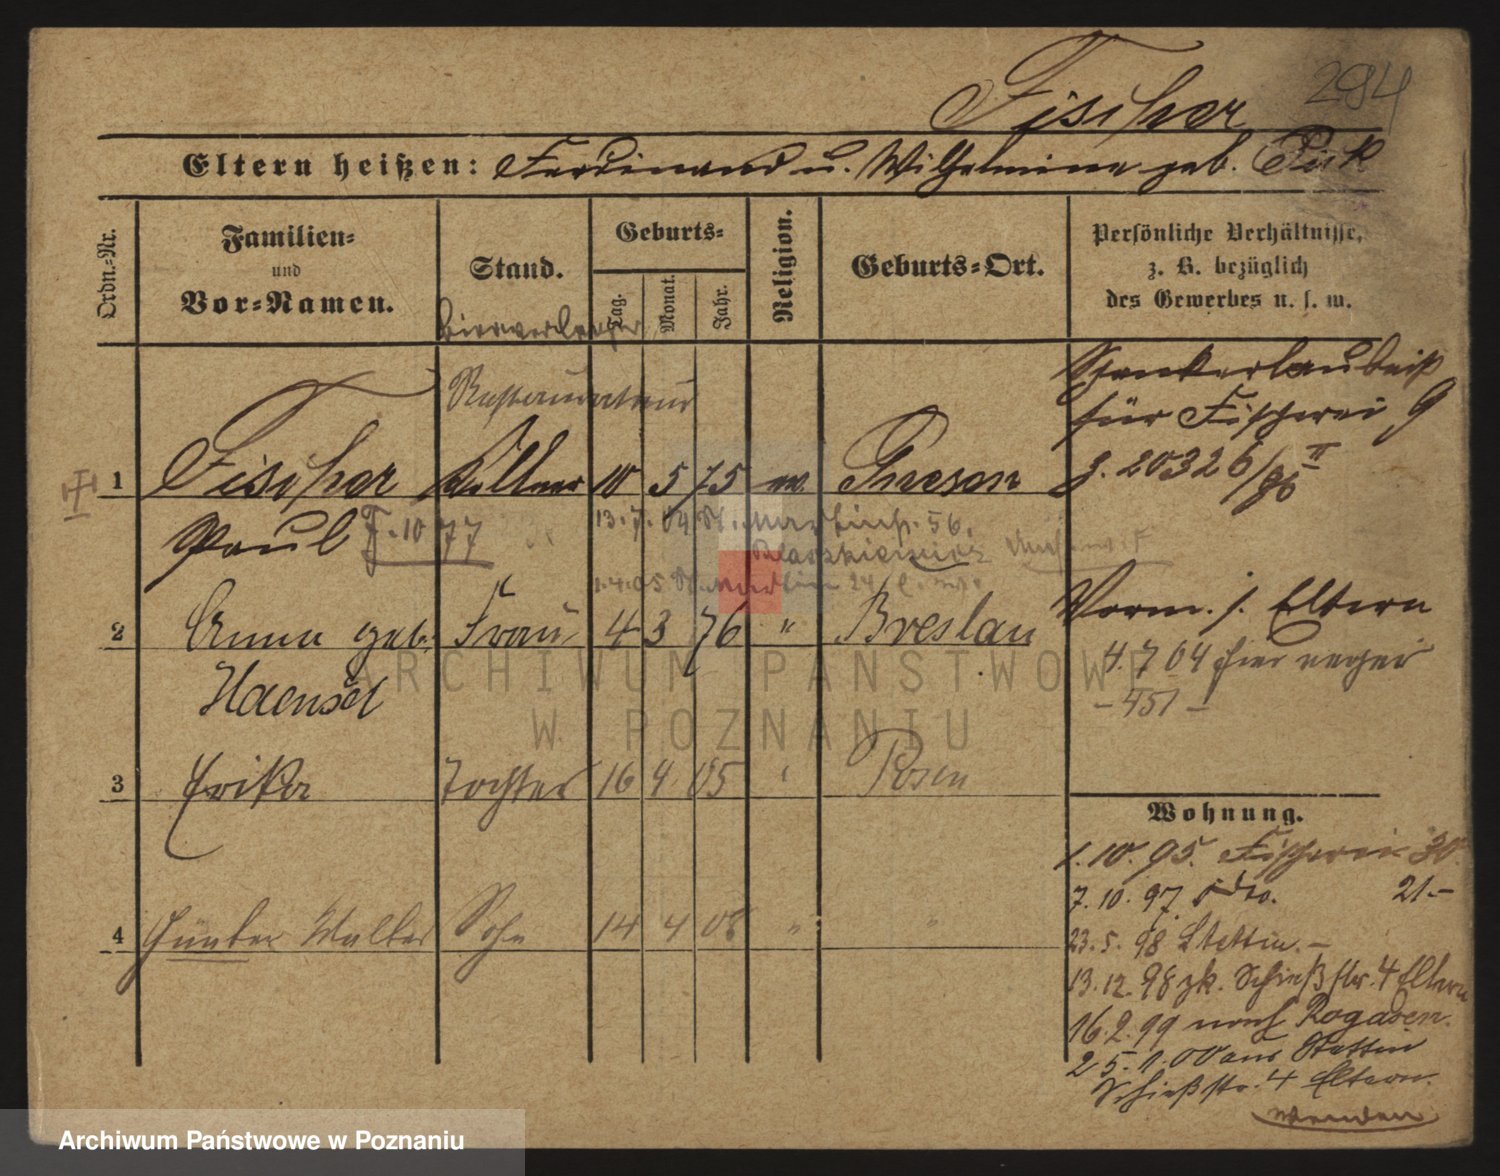 294
Fischer
Eltern heißen: Ferdinand u. Wilhelmine geb.
Ordn.-Nr.
Familien- und Vor-Namen.
Stand.
Geburts-
Tag.
Monat.
Jahr.
Religion.
Geburts-Ort.
Persönliche Verhältnisse, z. B. bezüglich des Gewerbes u. s. w.
Bierverleger
Restaurateur
1 Fischer Kellner 10 5 75 ev. Gnesen
Paul
13.7.04 St. Martinstr. 56.
1.4.05 St. Martin 24
2 Anna geb. Frau 4 3 76 " Breslau
Haensel
3 Erika Tochter 16 4 05 " Posen
4 Günter Walter Sohn 14 4 08 " "
Schankerlaubniß
für Fischerei 9
J. 20326/96 II
Vorm. s. Eltern
4.7.04 hier
- 451 -
Wohnung.
1.10.95. Fischerei 30.
7.10.97 dto. 21.-
23.5.98 Stettin. -
13.12.98 zk. Schießstr. 4 Eltern
16.2.99 nach Rogasen.
25.1.00 aus Stettin
Schießstr. 4 Eltern.
Wenden
ARCHIWUM PAŃSTWOWE
W POZNANIU
Archiwum Państwowe w Poznaniu